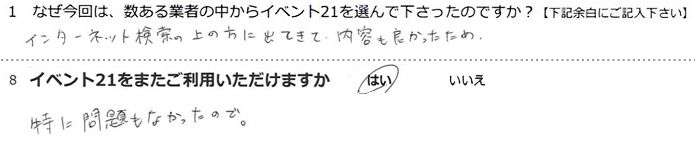 1 なぜ今回は、数ある業者の中からイベント21を選んで下さったのですか？【下記余白にご記入下さい】
インターネット検索の上の方に出てきて、内容も良かったため.
8 イベント21をまたご利用いただけますか はい いいえ
特に問題もなかったので。